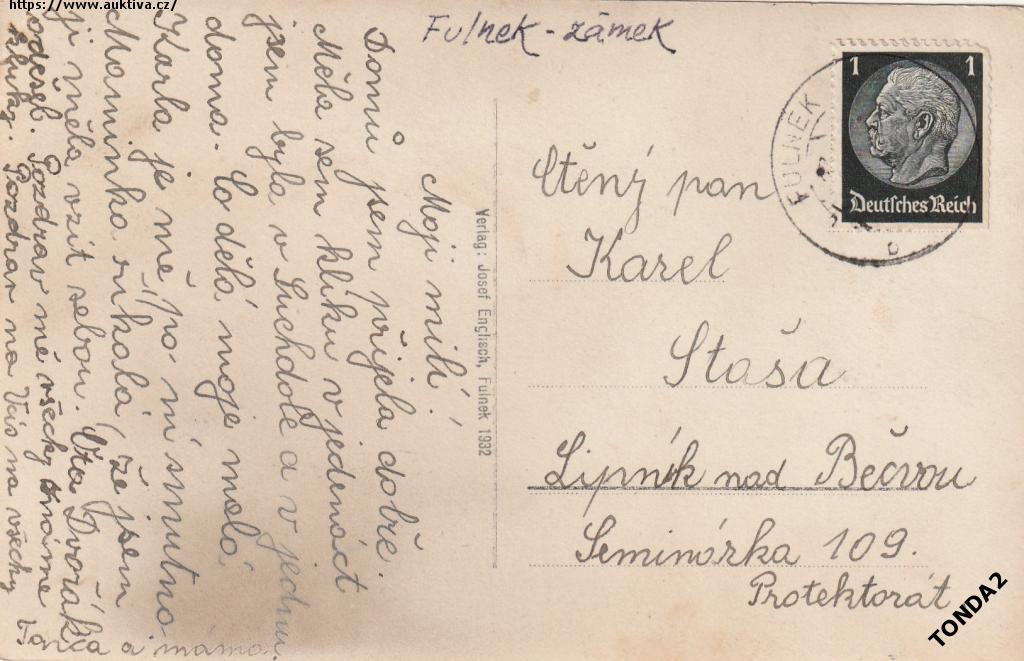 https://www.auktiva.cz/
Fulnek - zámek
1 1
Deutsches Reich
FULNEK
Moji milí!
Domů jsem přijela dobře.
Měla sem kliku v jedenáct
jsem byla v Suchdole a v jednu
doma. Co dělá moje malá
Karla je mě po ní smutno
Maminka říkala, že jsem
ji měla vzít sebou. Dvořák
odešel. Pozdrav mé všecky známé
kluky. Pozdrav na Vás na všechny
a máma.
Verlag: Josef Englisch, Fulnek 1932
Ctěný pan
Karel
Staša
Lipník nad Bečvou
Seminárka 109.
Protektorát
TONDA2